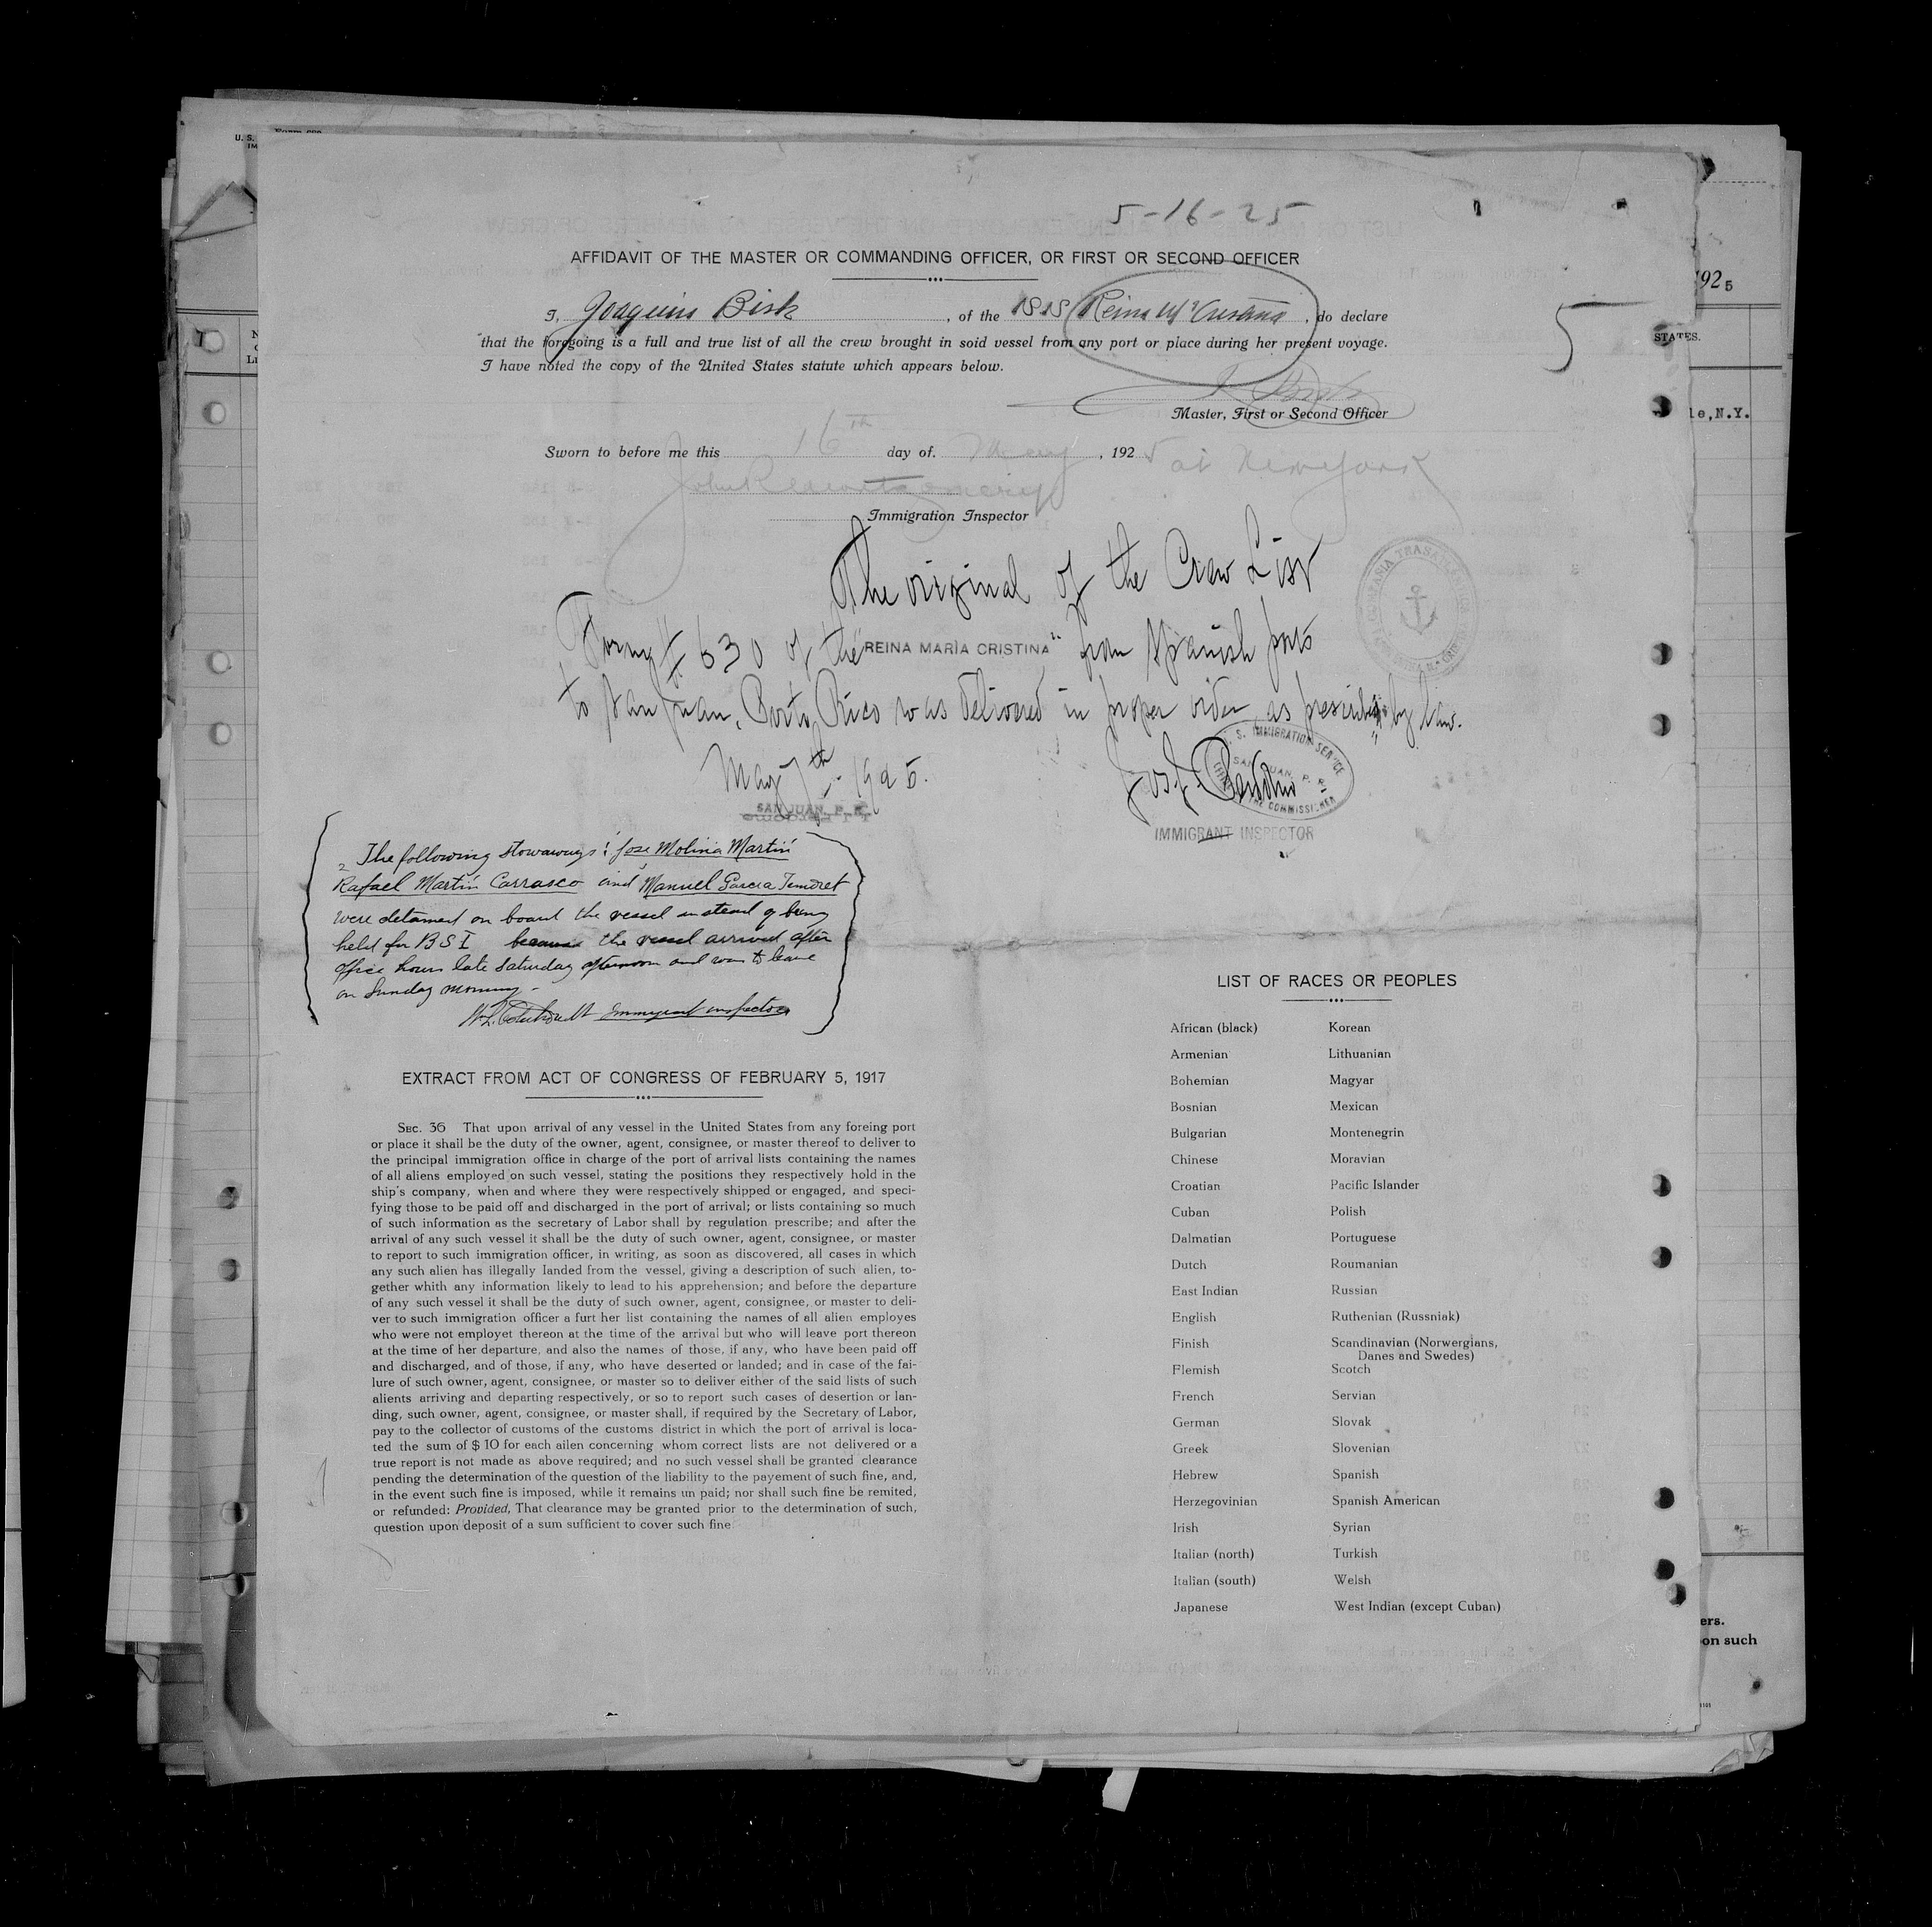 U. S.
IM
5-16-25
AFFIDAVIT OF THE MASTER OR COMMANDING OFFICER, OR FIRST OR SECOND OFFICER
I, Joaquin Bisk, of the Reina Ma Cristina, do declare
that the foregoing is a full and true list of all the crew brought in soid vessel from any port or place during her present voyage.
I have noted the copy of the United States statute which appears below.
5
Master, First or Second Officer
Sworn to before me this 16th day of. May, 1925 at New York
Immigration Inspector
The original of the Crew List
Form # 630 of the "REINA MARÍA CRISTINA" from Spanish ports
to San Juan, Porto Rico was delivered in proper order as prescribed by law.
May 7th 1925.
SAN JUAN, P. R.
U. S. IMMIGRATION SERVICE
SAN JUAN, P. R.
THE COMMISSIONER
IMMIGRANT INSPECTOR
The following stowaways: Jose Molina Martin
Rafael Martin Carrasco and Manuel Garcia
were detained on board the vessel instead of being
held for BSI because the vessel arrived after
office hours late Saturday afternoon and was to leave
on Sunday morning -
Immigrant inspector
EXTRACT FROM ACT OF CONGRESS OF FEBRUARY 5, 1917
SEC. 36 That upon arrival of any vessel in the United States from any foreing port
or place it shall be the duty of the owner, agent, consignee, or master thereof to deliver to
the principal immigration office in charge of the port of arrival lists containing the names
of all aliens employed on such vessel, stating the positions they respectively hold in the
ship's company, when and where they were respectively shipped or engaged, and speci-
fying those to be paid off and discharged in the port of arrival; or lists containing so much
of such information as the secretary of Labor shall by regulation prescribe; and after the
arrival of any such vessel it shall be the duty of such owner, agent, consignee, or master
to report to such immigration officer, in writing, as soon as discovered, all cases in which
any such alien has illegally landed from the vessel, giving a description of such alien, to-
gether whith any information likely to lead to his apprehension; and before the departure
of any such vessel it shall be the duty of such owner, agent, consignee, or master to deli-
ver to such immigration officer a furt her list containing the names of all alien employes
who were not employet thereon at the time of the arrival but who will leave port thereon
at the time of her departure, and also the names of those, if any, who have been paid off
and discharged, and of those, if any, who have deserted or landed; and in case of the fai-
lure of such owner, agent, consignee, or master so to deliver either of the said lists of such
alients arriving and departing respectively, or so to report such cases of desertion or lan-
ding, such owner, agent, consignee, or master shall, if required by the Secretary of Labor,
pay to the collector of customs of the customs district in which the port of arrival is loca-
ted the sum of $ 10 for each ailen concerning whom correct lists are not delivered or a
true report is not made as above required; and no such vessel shall be granted clearance
pending the determination of the question of the liability to the payement of such fine, and,
in the event such fine is imposed, while it remains un paid; nor shall such fine be remited,
or refunded: Provided, That clearance may be granted prior to the determination of such,
question upon deposit of a sum sufficient to cover such fine
LIST OF RACES OR PEOPLES
African (black) Korean
Armenian Lithuanian
Bohemian Magyar
Bosnian Mexican
Bulgarian Montenegrin
Chinese Moravian
Croatian Pacific Islander
Cuban Polish
Dalmatian Portuguese
Dutch Roumanian
East Indian Russian
English Ruthenian (Russniak)
Finish Scandinavian (Norwergians,
Danes and Swedes)
Flemish Scotch
French Servian
German Slovak
Greek Slovenian
Hebrew Spanish
Herzegovinian Spanish American
Irish Syrian
Italian (north) Turkish
Italian (south) Welsh
Japanese West Indian (except Cuban)
1925
STATES.
le, N.Y.
ers.
on such